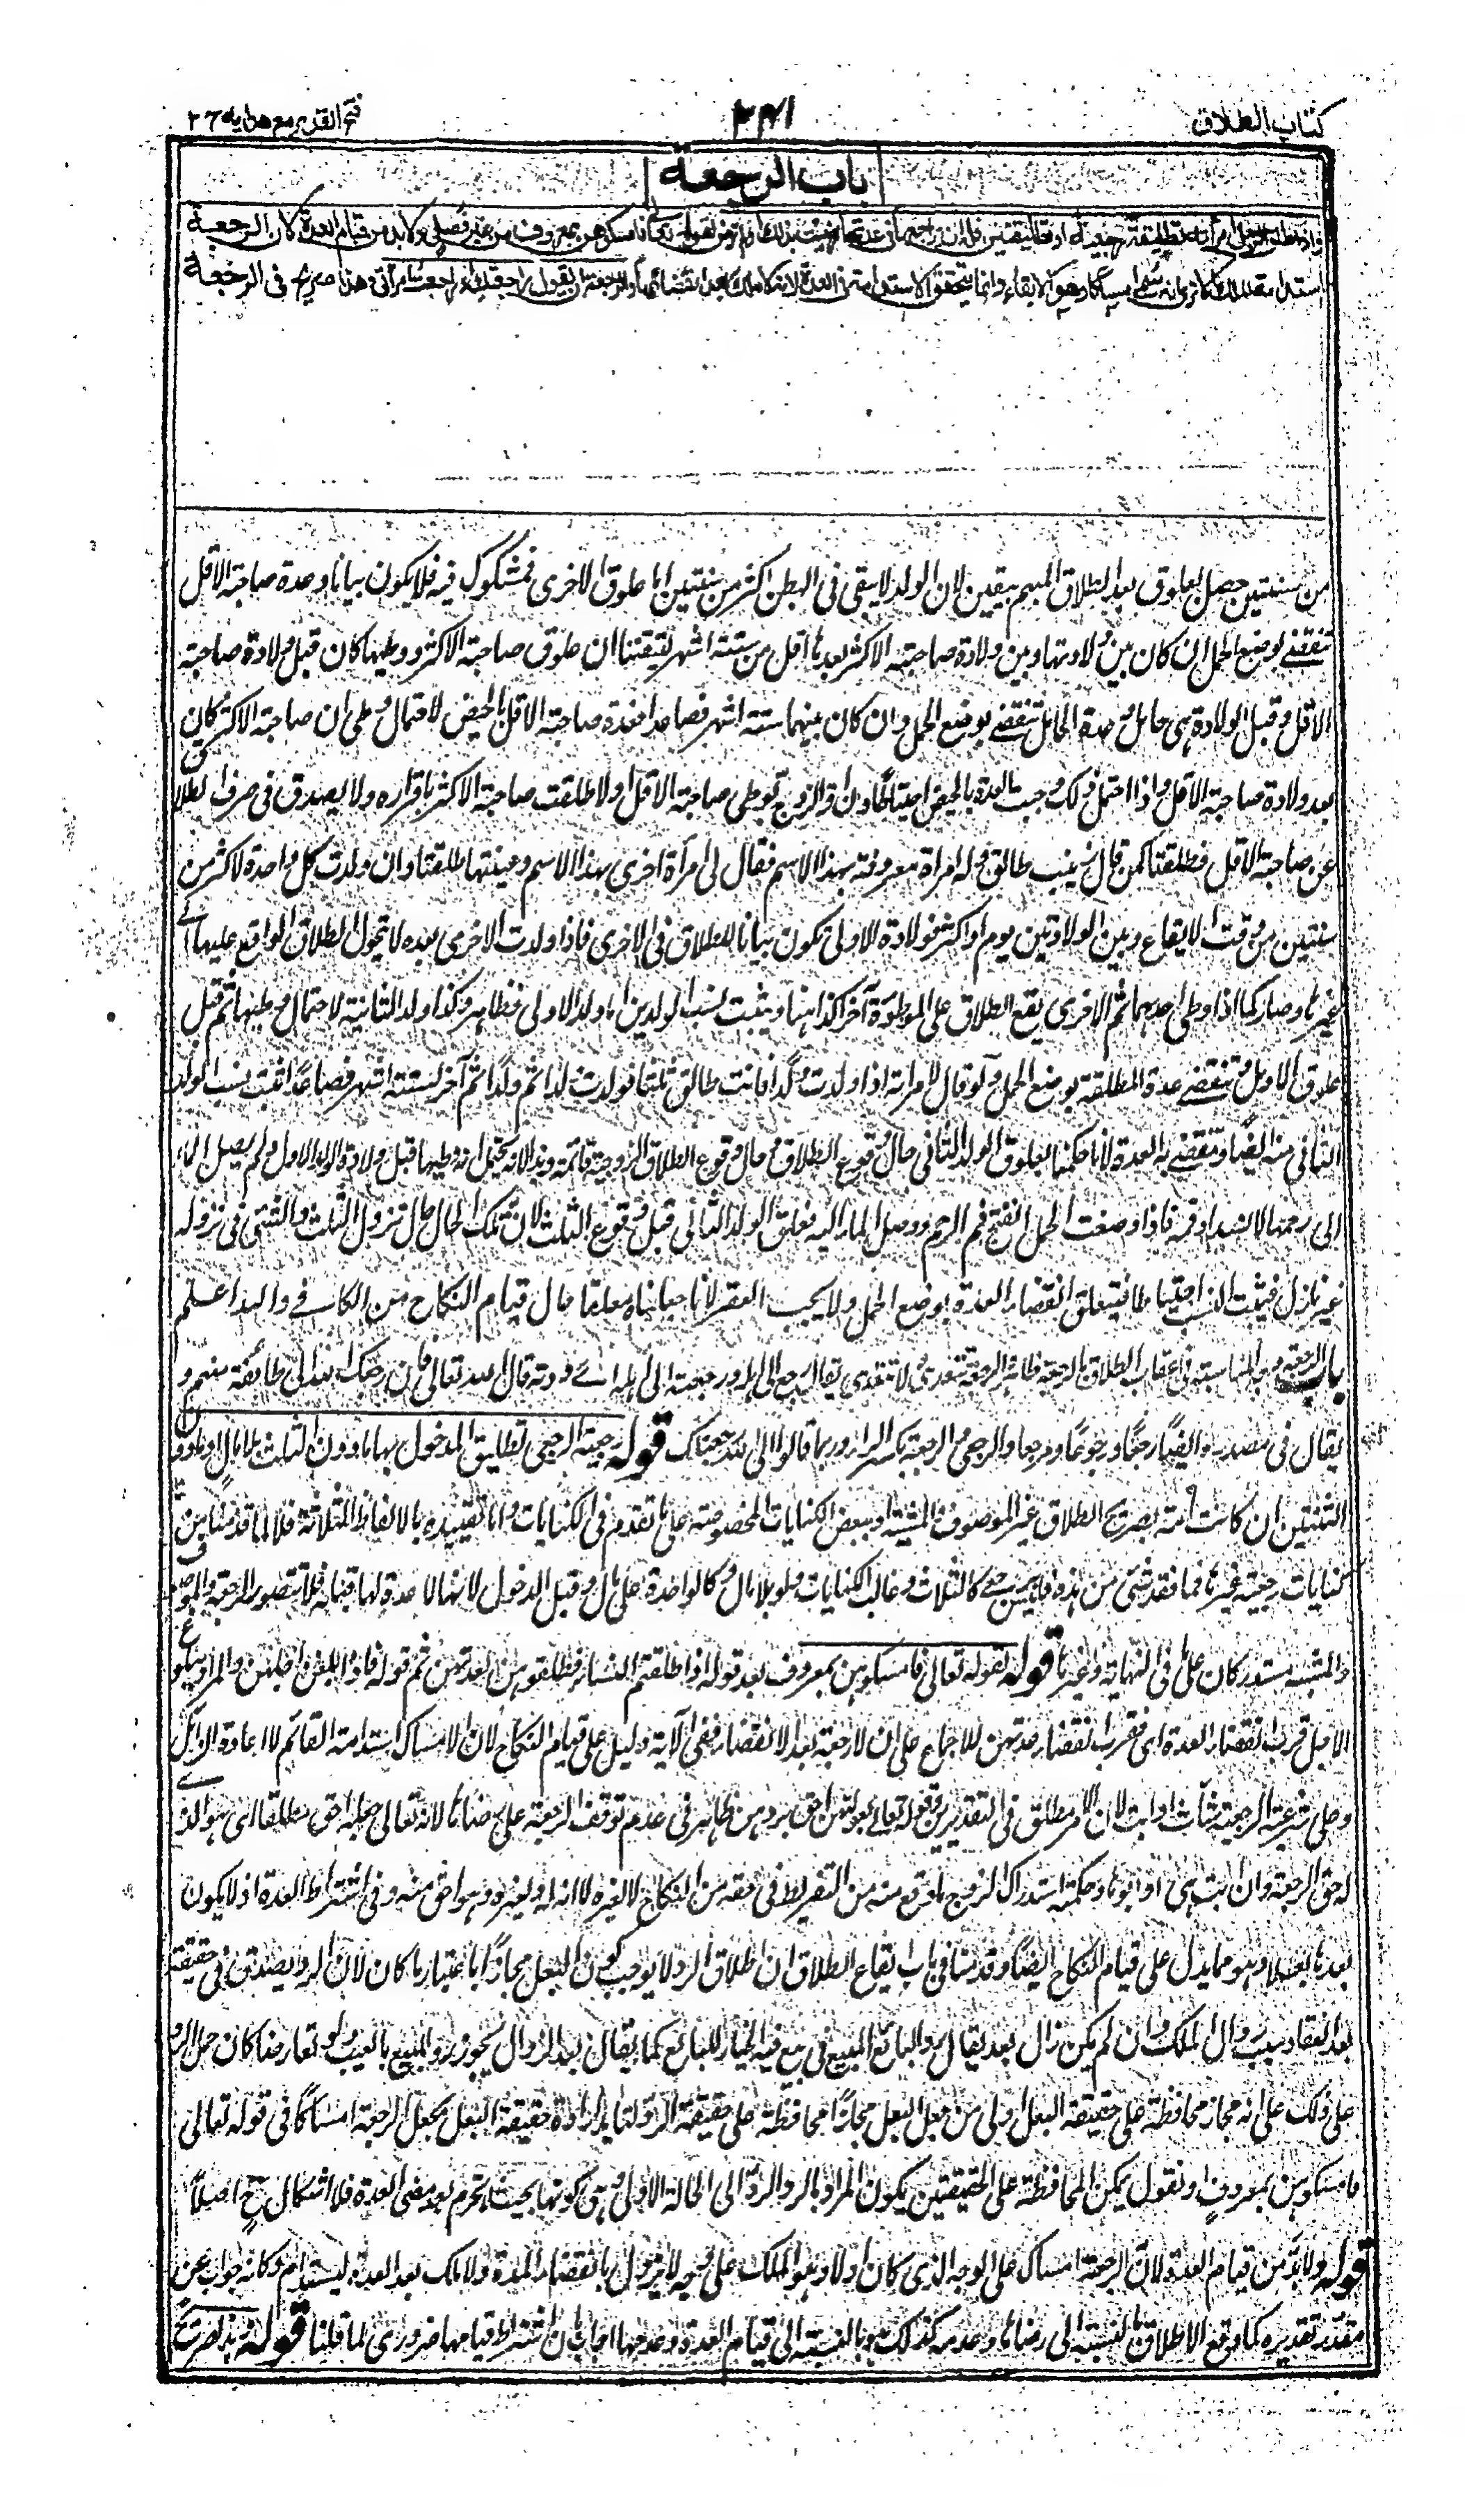 كتاب الطلاق
٣٣١
فتح القدير مع هدايه ٢٦
باب الرجعة
واذا طلق الرجل امرأته تطليقة رجعية او تطليقتين فله ان يراجعها في عدتها رضيت بذلك او لم ترض لقوله تعالى فامسكوهن بمعروف من غير فصل ولا بد من قيام العدة لان الرجعة
استدامة الملك الا ترى انه سمى امساكا وهو الابقاء وانما يتحقق الاستدامة في العدة لانه لا ملك بعد انقضائها والرجعة ان يقول راجعتك او راجعت امرأتي وهذا صريح في الرجعة
من سنتين حصل العلوق بعد الطلاق المبهم بيقين لان الولد لا يبقى في البطن اكثر من سنتين اما علوق الاخرى فمشكوك فيه فلا يكون بيانا وعدة صاحبة الاقل
تنقضے بوضع الحمل ان كان بين ولادتها وبين ولادة صاحبة الاكثر بعدها اقل من ستة اشهر لتيقننا ان علوق صاحبة الاكثر ووطيها كان قبل ولادة صاحبة
الاقل وقبل الولادة هى حامل وعدة الحامل تنقضے بوضع الحمل وان كان بينهما ستة اشهر فصاعدا فعدة صاحبة الاقل بالحيض لاحتمال وطى ان صاحبة الاكثر كان
بعد ولادة صاحبة الاقل واذا احتمل ذلك وجبت العدة بالحيض احتياطا وان اقر الزوج بوطى صاحبة الاقل اولا طلقت صاحبة الاكثر باقراره ولا يصدق فى صرف الطلاق
عن صاحبة الاقل فطلقتا كمن قال زينب طالق وله امراة معروفة بهذا الاسم فقال لى امرأة اخرى بهذا الاسم وعينتها طلقتا وان ولدت كل واحدة لاكثر من
سنتين من وقت الايقاع وبين الولادتين يوم او اكثر فولادة الاولى تكون بيانا للطلاق فى الاخرى فاذا ولدت الاخرى بعده لا يتحول الطلاق الواقع عليها الے
غيرها وصار كما اذا وطى احدهما ثم الاخرى يقع الطلاق على الموطوءة آخر كذا هنا ويثبت نسب الولدين اما ولد الاولى فظاهر وكذا ولد الثانية لاحتمال وطيها ثم قبل
علوق الاول وتنقضے عدة المطلقة بوضع الحمل ولو قال لامرأته اذا ولدت ولدا فانت طالق ثلثا فولدت ولدا ثم ولدا ثم آخر لستة اشهر فصاعدا ثبت نسب الولد
الثانى منه ايضا وتنقضے به العدة لانا حكمنا بعلوق الولد الثانى حال وقوع الطلاق وحال وقوع الطلاق الزوجية قائمة وهذا لانه يحتمل انه وطيها قبل ولادة الولد الاول ولم يصل الماء
الى رحمها لانسداد فمه فاذا وضعت الحمل انفتح فم الرحم ووصل الماء اليه فعلق الولد الثانى قبل وقوع الثلث لان تلك الحال حال نزول الثلث والشئ فى نزوله
غير نازل فيثبت النسب احتياطا فيتعلق انقضاء العدة بوضع الحمل ولا يجب العقر لانا جعلناه معلقا حال قيام النكاح من الكافے والله اعلم
باب الرجعة وجه المناسبة فى اعقاب الطلاق بالرجعة ظاهر والرجعة تتعدى ولا تتعدى يقال رجع الى اهله ورجعته الى اهله اے رددته قال الله تعالى فان رجعك الله الى طائفة منهم و
يقال فى مصدره ايضا رجعا ورجوعا ومرجعا والرجعى الرجعة بكسر الراء وربما قالوا الى الله رجعناك قوله رجعية الرجعى تطليق المدخول بها ما دون الثلث بلا مال او ما دون
الثنتين ان كانت امة بصريح الطلاق غير الموصوف والمشبه او ببعض الكنايات المخصوصة على ما تقدم فى الكنايات واما تقييده بالالفاظ الثلاثة فلا لما قدمنا من ان
كنايات رجعية غيرها فما فقد شئ من هذه فليس برجعے كالثلاث وغالب الكنايات ولو بلا مال وكالواحدة على مال وقبل الدخول لانها لا عدة لها قبله فلا تتصور الرجعة والموصوف
والمشبه مستدركان على ما فى النهاية وغيرها قوله لقوله تعالى فامسكوهن بمعروف بعد قوله اذا طلقتم النساء فطلقوهن لعدتهن ثم قوله فاذا بلغن اجلهن والمراد ببلوغ
الاجل قرب انقضاء العدة اى فقرب انقضاء عدتهن للاجماع على ان لا رجعة بعد الانقضاء ففى الآية دليل على قيام النكاح لان الامساك استدامة القائم لا اعادة الزائل
وعلى شرعية الرجعة شاءت او ابت لان الامر مطلق فى التقديرين وقوله تعالى وبعولتهن احق بردهن ظاهر فى عدم توقف الرجعة على رضاها لانه تعالى جعله احق مطلقا اى هو الذے
له حق الرجعة وان ابت هى او ابوها وحكمته استدراك الزوج ما وقع منه من التفريط فى حقه من النكاح لا لغيره لا انه له ولغيره وهو احق منه وفى اشتراط العدة اذ لا يكون
بعدها بعلا وهو مما يدل على قيام النكاح ايضا وقدمنا فى باب ايقاع الطلاق ان اطلاق الرد لا يوجب كون البعل مجازا باعتبار ما كان لان الرد يصدق فى حقيقة
بعد انعقاد سبب زوال الملك وان لم يكن زال بعد يقال رد البائع المبيع فى بيع فيه الخيار للبائع كما يقال بعد الزوال يجوز رد المبيع بالعيب ولو تعارضا كان حمل الرد
على ذلك على انه مجاز محافظة على حقيقة البعل اولى من جعل البعل مجازا محافظة على حقيقة الرد لتأيد ارادة حقيقة البعل بجعل الرجعة امساكا فى قوله تعالى
فامسكوهن بمعروف او نقول يمكن المحافظة على الحقيقتين يكون المراد بالرد الرد الى الحالة الاولى وهى كونها بحيث لا تحرم بعد مضى العدة فلا اشكال ح اصلا
قوله ولا بد من قيام العدة لان الرجعة امساك على الوجه الذى كان اولا وهو الملك على وجه لا يزول بانقضاء المدة ولا ملك بعد العدة ليستدام وكأنه جواب عن
مقدر تقديره كما وقع الاطلاق بالنسبة الى رضاها وعدمه كذلك هو بالنسبة الى قيام العدة وعدمها اجاب بان اشتراط قيامها ضرورى لما قلنا قوله وهذا صريح